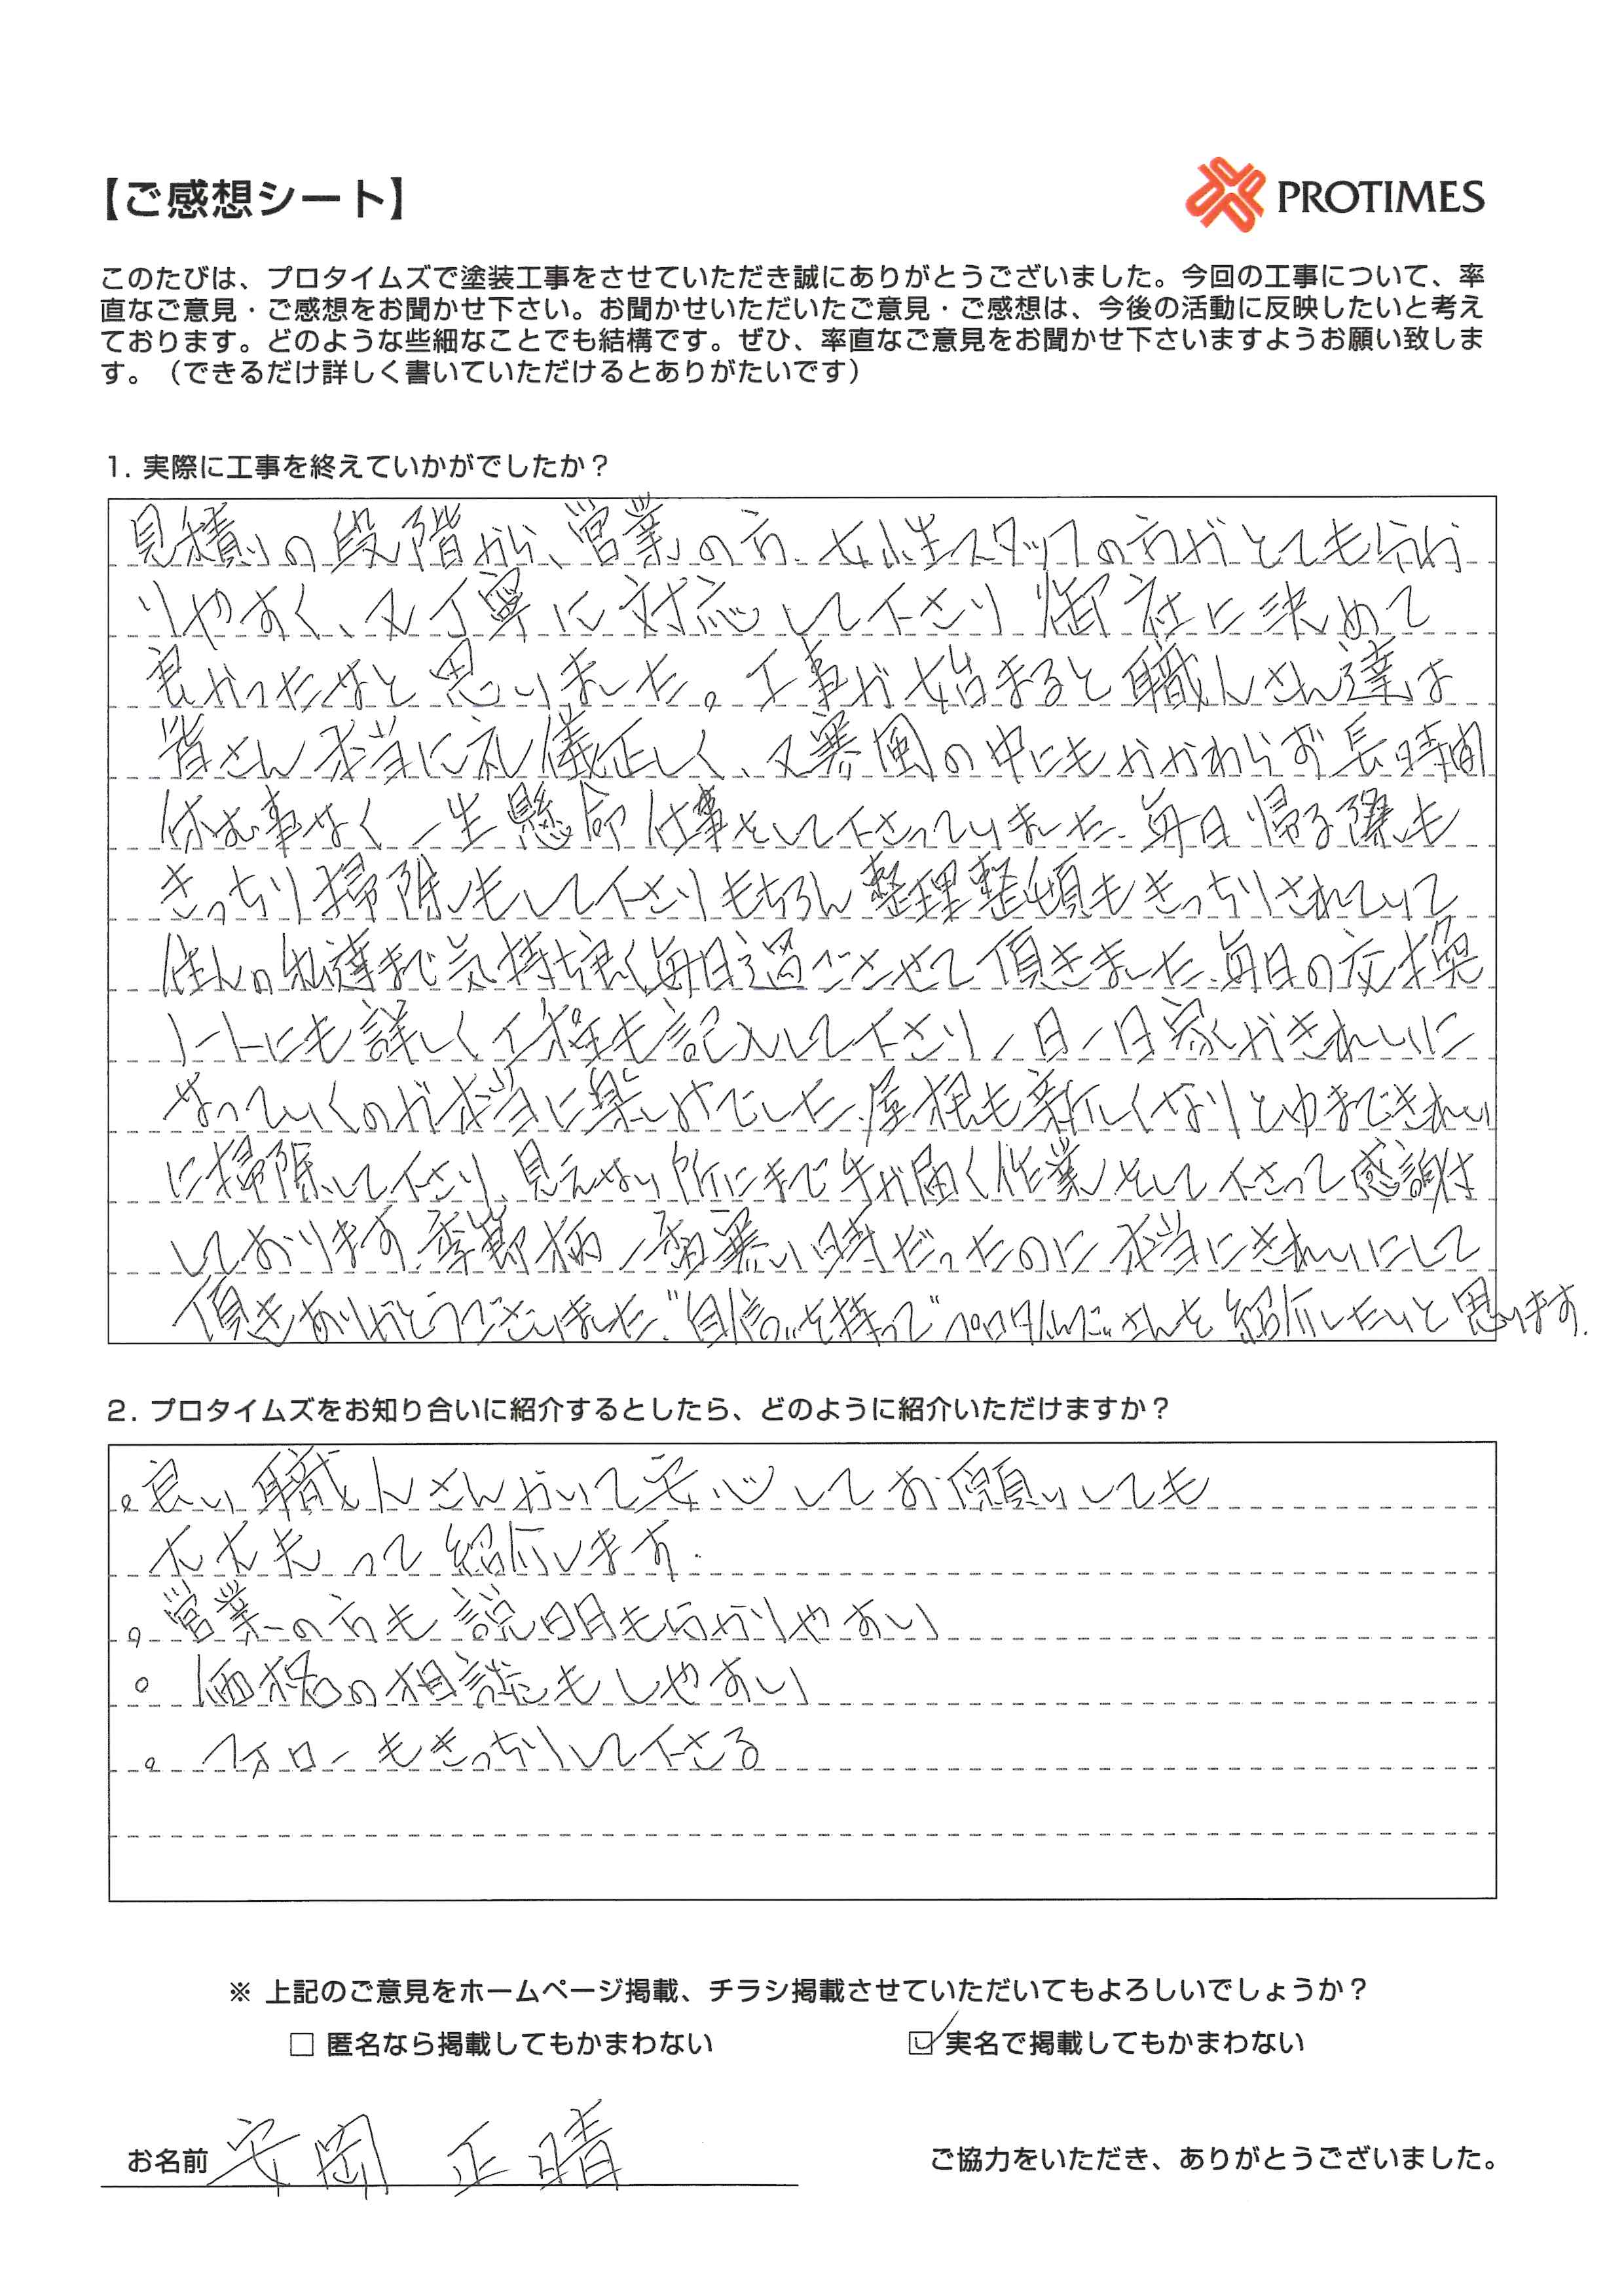 【ご感想シート】
PROTIMES
このたびは、プロタイムズで塗装工事をさせていただき誠にありがとうございました。今回の工事について、率
直なご意見・ご感想をお聞かせ下さい。お聞かせいただいたご意見・ご感想は、今後の活動に反映したいと考え
ております。どのような些細なことでも結構です。ぜひ、率直なご意見をお聞かせ下さいますようお願い致しま
す。（できるだけ詳しく書いていただけるとありがたいです）
1. 実際に工事を終えていかがでしたか？
見積りの段階から、営業の方、女性スタッフの方がとても分か
りやすく、又丁寧に対応して下さり 御社に決めて
良かったなと思いました。工事が始まると職人さん達は
皆さん本当に礼儀正しく、又寒風の中にもかかわらず長時間
休む事なく一生懸命仕事をして下さっていました、毎日帰る際も
きっちり掃除もして下さりもちろん整理整頓もきっちりされていて
住人の私達まで気持ち良く毎日過ごさせて頂きました、毎日の交換
ノートにも詳しく工程も記入して下さり一日一日家がきれいに
なっていくのが本当に楽しみでした、屋根も新しくなりといまできれい
に掃除して下さり、見えない所にまで手が届く作業をして下さって感謝は
しております、季節柄一番寒い時だったのに本当にきれいにして
頂きありがとうございました、"自信"を持って"プロタイムズ"さんを紹介したいと思います.
2. プロタイムズをお知り合いに紹介するとしたら、どのように紹介いただけますか？
。良い職人さんがいて安心してお願いしても
大丈夫って紹介します.
。営業の方も説明も分かりやすい
。価格の相談もしやすい
。フォローもきっちりして下さる
※ 上記のご意見をホームページ掲載、チラシ掲載させていただいてもよろしいでしょうか？
□ 匿名なら掲載してもかまわない ☑ 実名で掲載してもかまわない
お名前 安岡 正晴 ご協力をいただき、ありがとうございました。